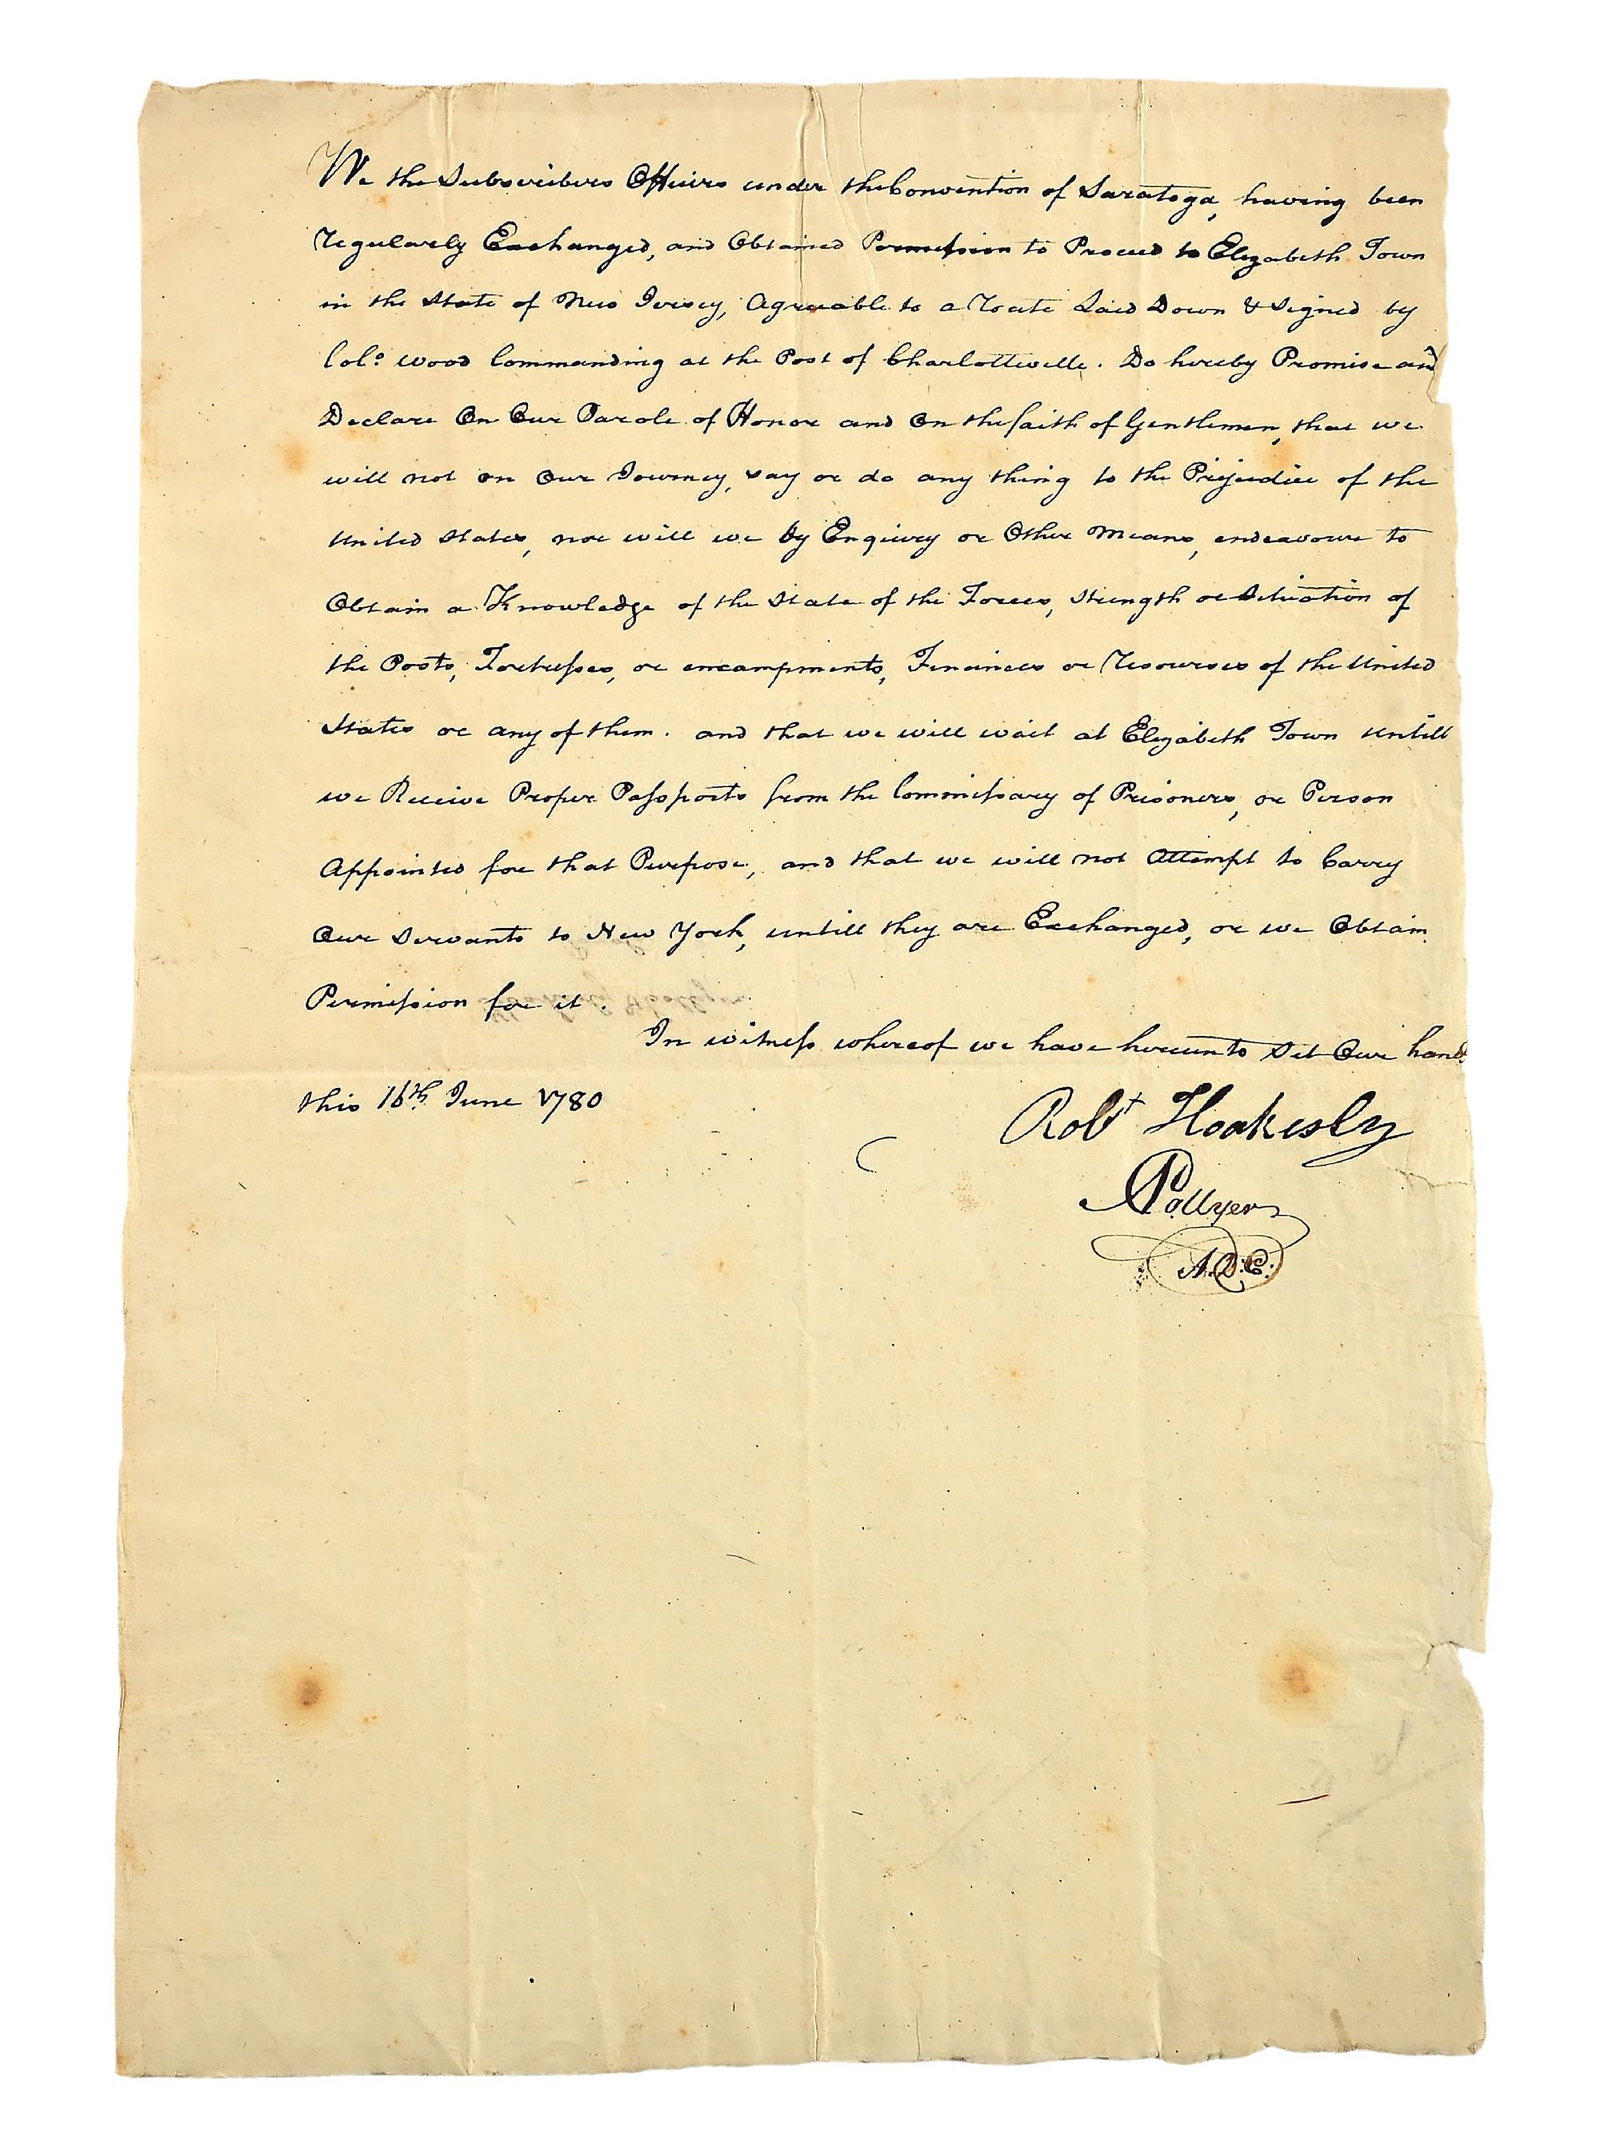 We the Subscribers Officers under the Convention of Saratoga, having been
regularly Exchanged, and Obtained Permission to Proceed to Elizabeth Town
in the State of New Jersey, Agreeable to a Route Laid Down & Signed by
Col.º Wood Commanding at the Post of Charlotteville. Do hereby Promise and
Declare On Our Parole of Honor and On the faith of Gentlemen, that we
will not on Our Journey, say or do any thing to the Prejudice of the
United States, nor will we by Enquiry or Other Means, endeavour to
Obtain a Knowledge of the State of the Forces, Strength or Situation of
the Posts, Fortresses, or encampments, Finances or Resources of the United
States or any of them. and that we will wait at Elizabeth Town untill
we Receive Proper Passports from the Commissary of Prisoners, or Person
Appointed for that Purpose, and that we will not Attempt to Carry
Our Servants to New York, untill they are Exchanged, or we Obtain
Permission for it.
In witness whereof we have hereunto Set Our hands
this 16th June 1780
Robt Hoakesly
APollyer
A.D.C.